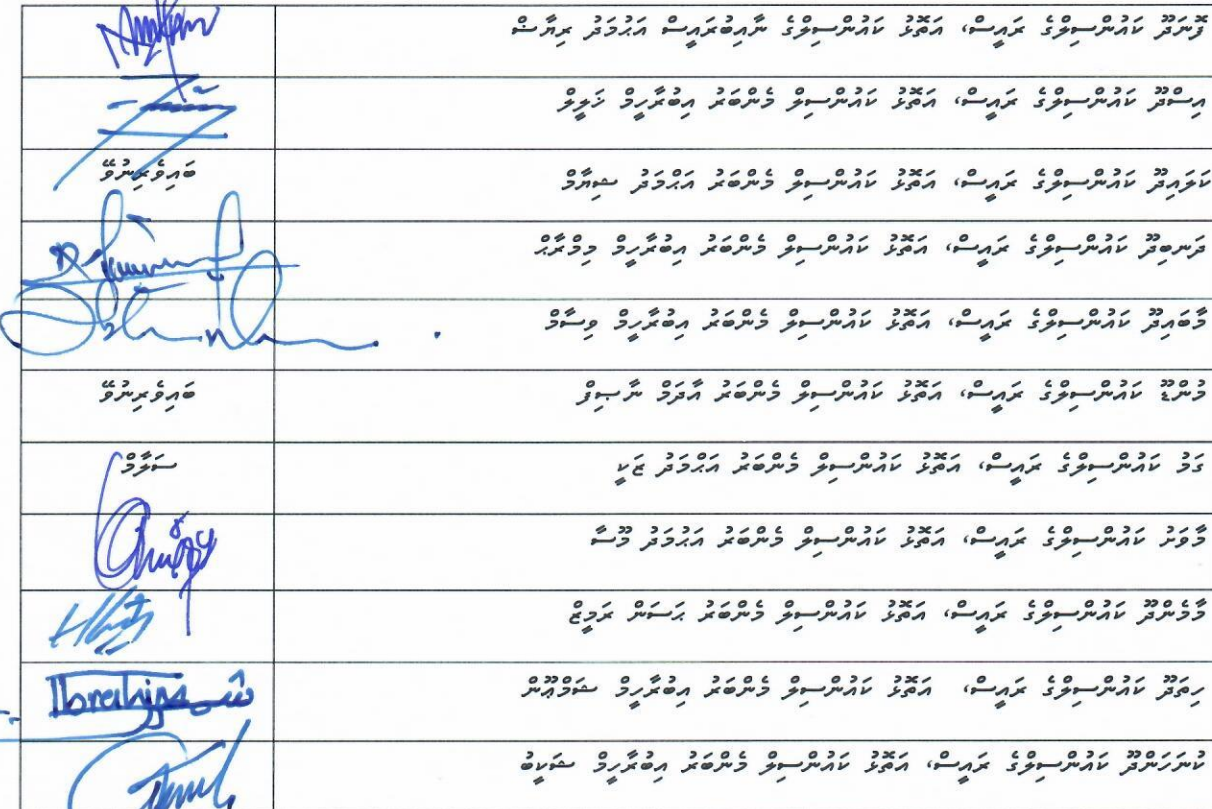 ފޮނަދޫ ކައުންސިލްގެ ރައީސް، އަތޮޅު ކައުންސިލްގެ ނާއިބުރައީސް އަޙުމަދު ރިޔާޝް
އިސްދޫ ކައުންސިލްގެ ރައީސް، އަތޮޅު ކައުންސިލް މެންބަރު އިބްރާހީމް ޚަލީލް
ކަލައިދޫ ކައުންސިލްގެ ރައީސް، އަތޮޅު ކައުންސިލް މެންބަރު އަޙްމަދު ޝިޔާމް
ބައިވެރިނުވޭ
ދަނބިދޫ ކައުންސިލްގެ ރައީސް، އަތޮޅު ކައުންސިލް މެންބަރު އިބްރާހީމް މިމްރާޙް
މާބައިދޫ ކައުންސިލްގެ ރައީސް، އަތޮޅު ކައުންސިލް މެންބަރު އިބްރާހީމް ވިސާމް
މުންޑޫ ކައުންސިލްގެ ރައީސް، އަތޮޅު ކައުންސިލް މެންބަރު އާދަމް ނާޞިފް
ބައިވެރިނުވޭ
ގަމު ކައުންސިލްގެ ރައީސް، އަތޮޅު ކައުންސިލް މެންބަރު އަޙްމަދު ޒަކީ
ސަލާމް
މާވަށު ކައުންސިލްގެ ރައީސް، އަތޮޅު ކައުންސިލް މެންބަރު އަޙުމަދު މޫސާ
މާމެންދޫ ކައުންސިލްގެ ރައީސް، އަތޮޅު ކައުންސިލް މެންބަރު ޙަސަން ރަމީޒް
ހިތަދޫ ކައުންސިލްގެ ރައީސް، އަތޮޅު ކައުންސިލް މެންބަރު އިބްރާހީމް ޝަމްޢޫން
Ibrahim
ކުނަހަންދޫ ކައުންސިލްގެ ރައީސް، އަތޮޅު ކައުންސިލް މެންބަރު އިބްރާހީމް ޝަކީބު